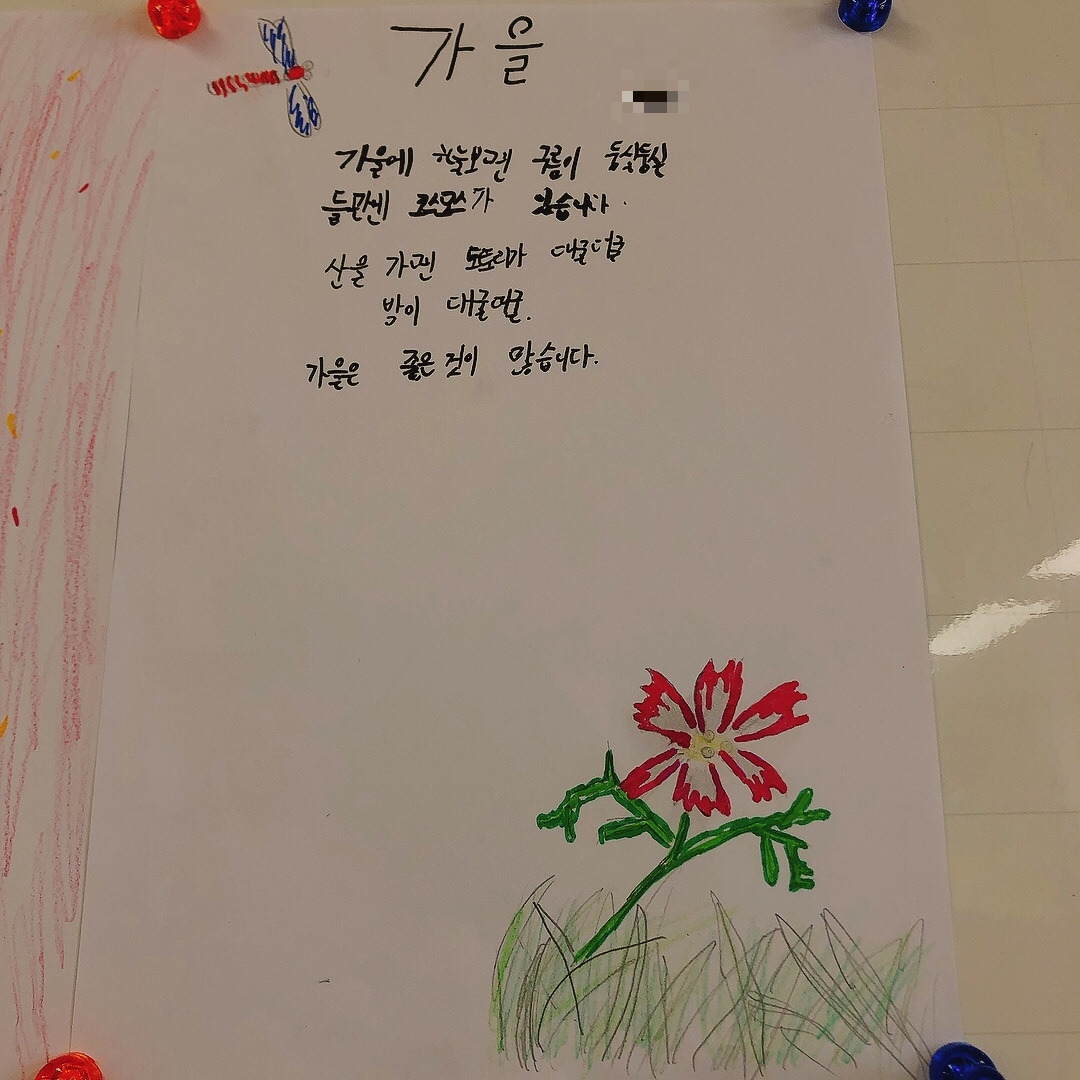 가을
가을에 하늘보면 구름이 둥실둥실
들판엔 코스모스가 있습니다.
산을 가면 도토리가 대굴덱굴
밤이 대굴덱굴.
가을은 좋은 것이 많습니다.